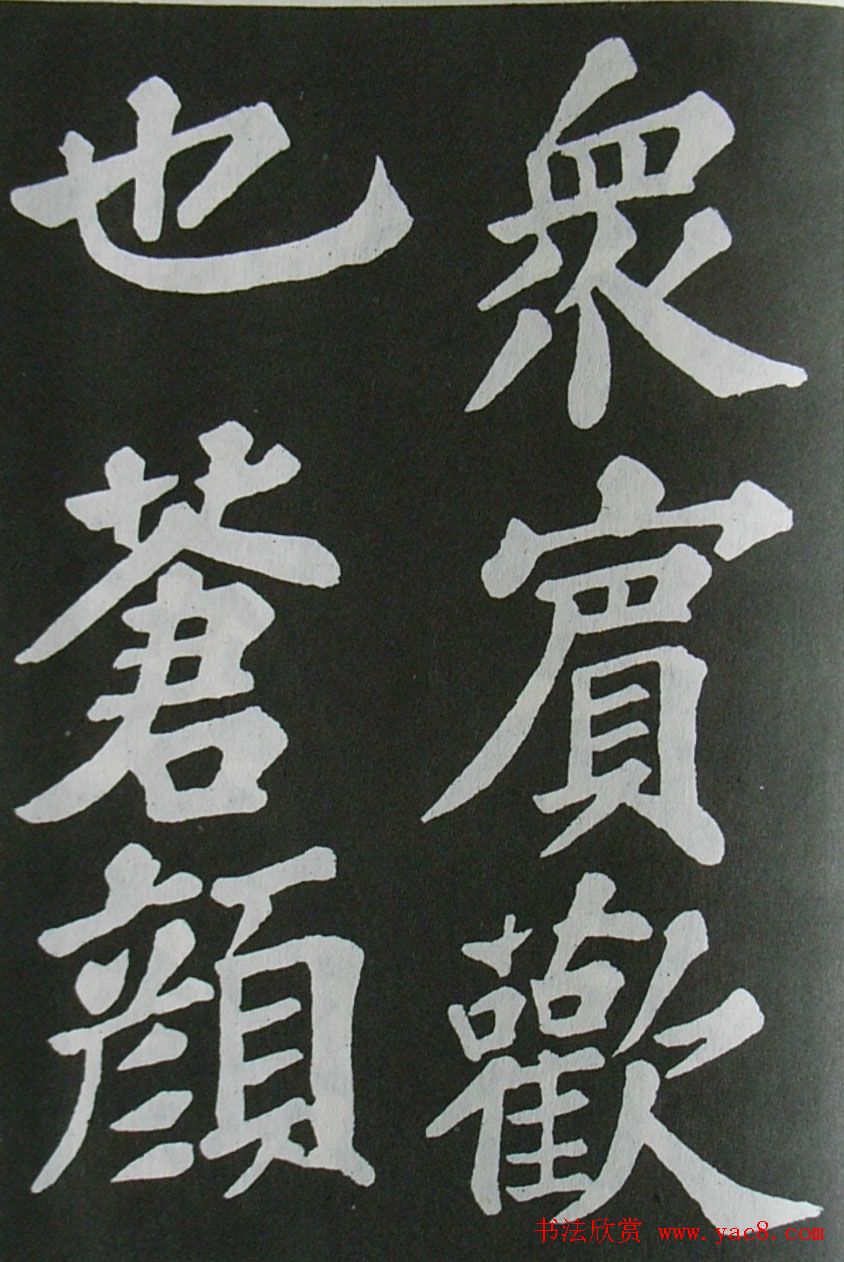 眾賓歡
也蒼顔
书法欣赏 www.yac8.com